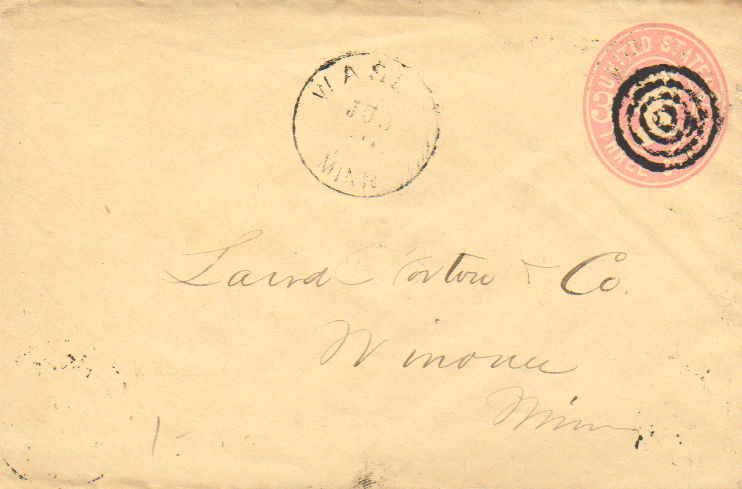 UNITED STATES
THREE
WAS
MINN
Laird Norton & Co.
Winona
Minn